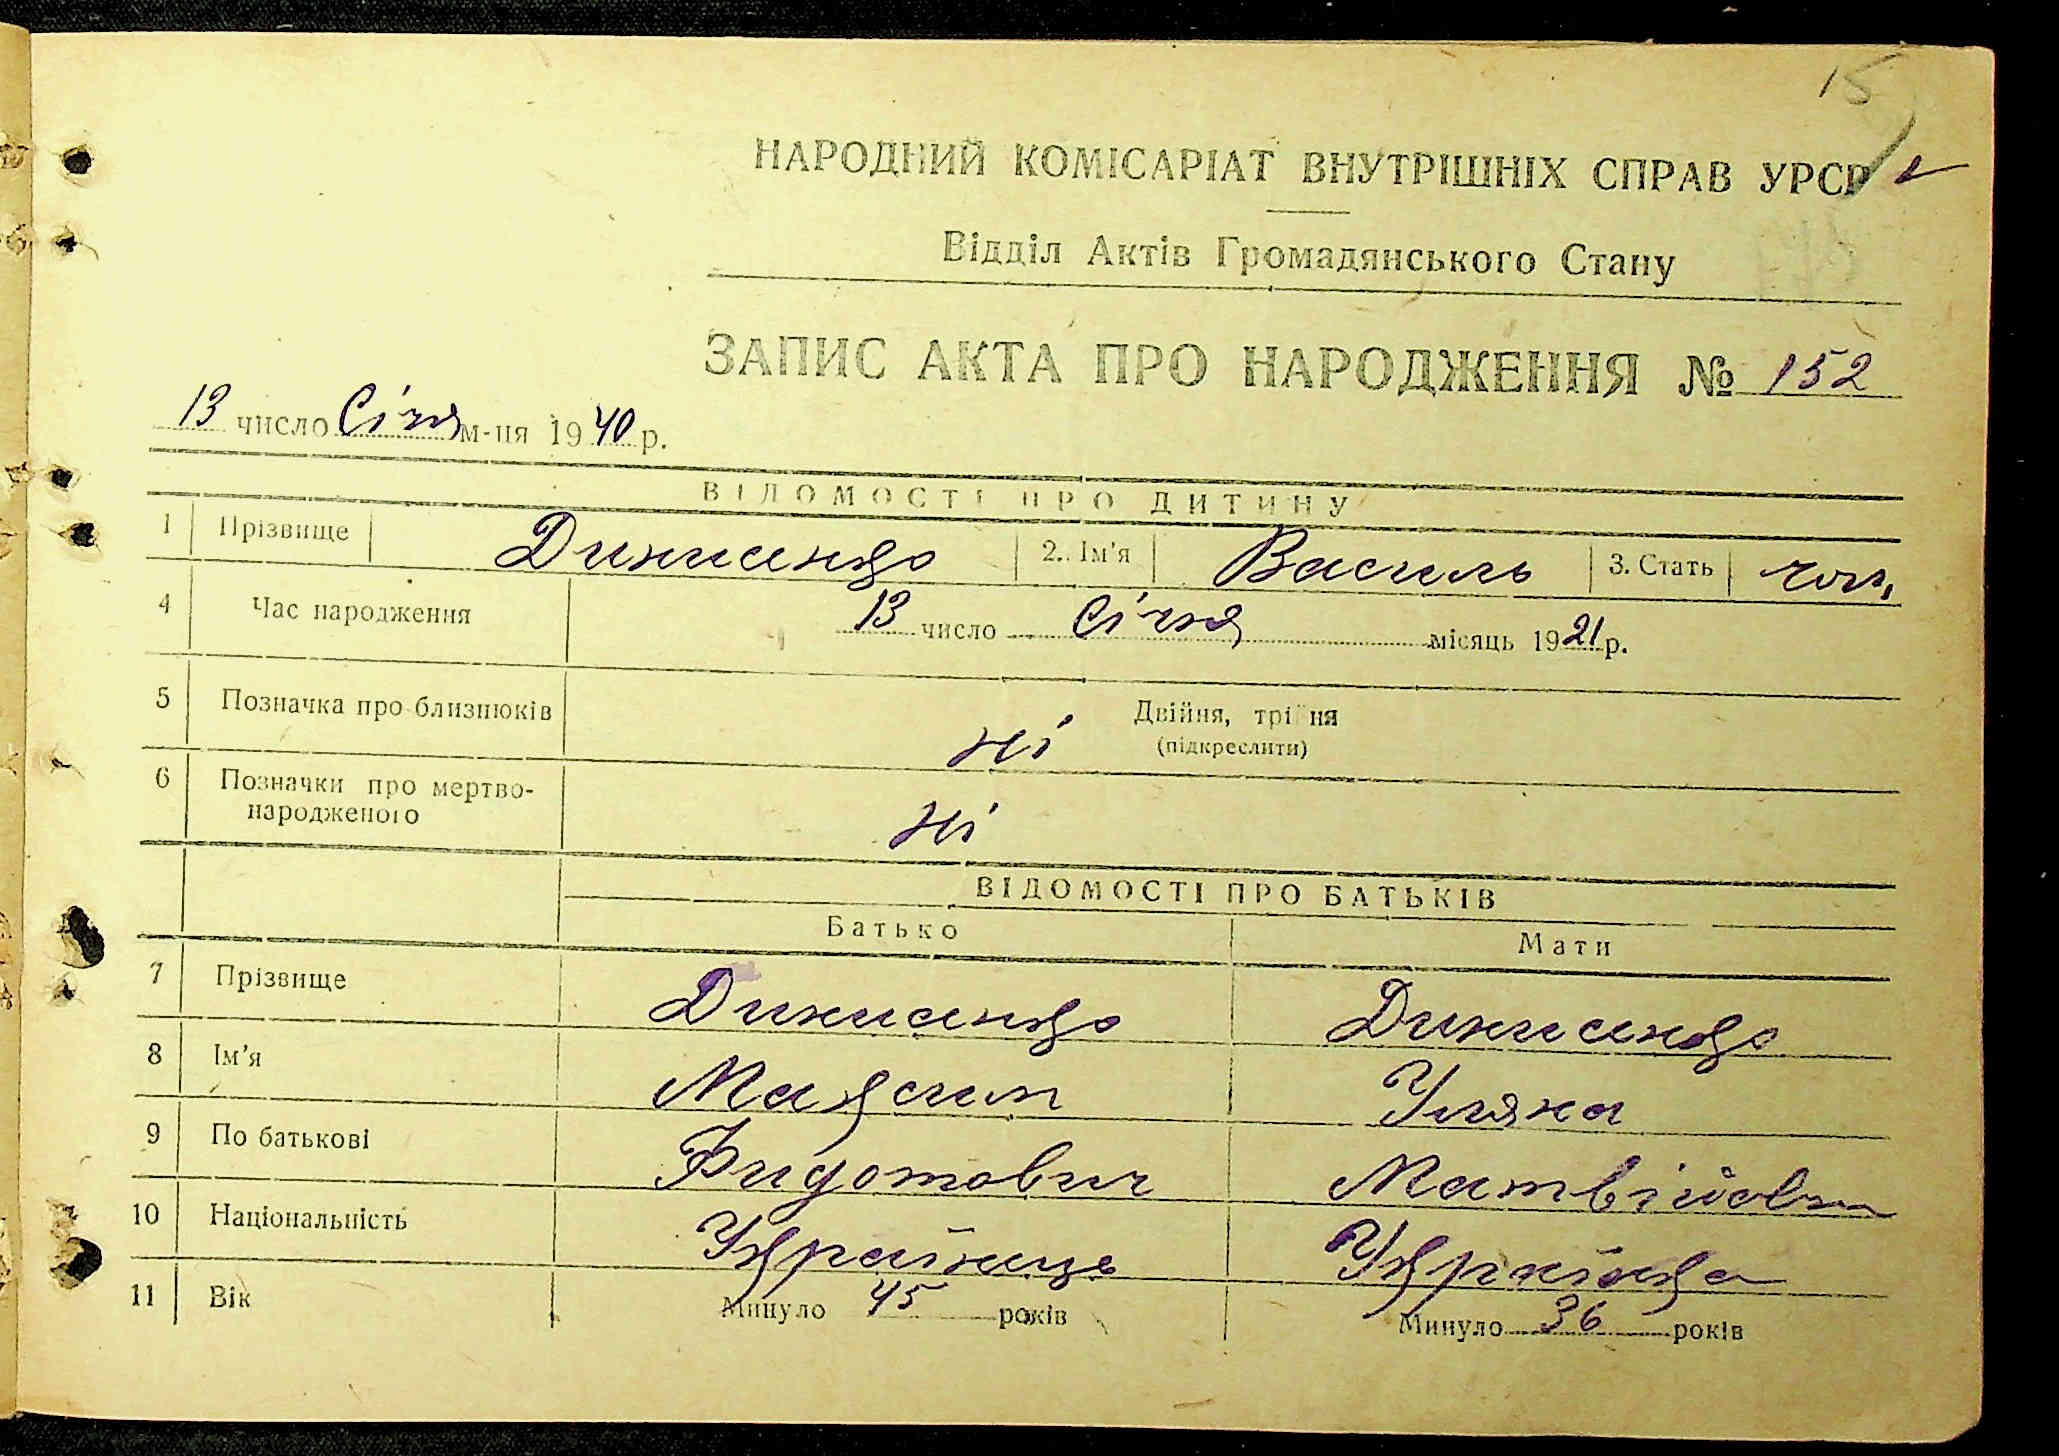 15
НАРОДНИЙ КОМІСАРІАТ ВНУТРІШНІХ СПРАВ УРСР
Відділ Актів Громадянського Стану
ЗАПИС АКТА ПРО НАРОДЖЕННЯ № 152
13 число Січня м-ця 1940 р.
ВІДОМОСТІ ПРО ДИТИНУ
1 Прізвище Динисенко 2. Ім'я Василь 3. Стать чол.
4 Час народження 13 число Січня місяць 1921 р.
5 Позначка про близнюків ні Двійня, трійня
(підкреслити)
6 Позначки про мертво-
народженого ні
ВІДОМОСТІ ПРО БАТЬКІВ
Батько Мати
7 Прізвище Динисенко Динисенко
8 Ім'я Максим Уляна
9 По батькові Фидотович Матвійовна
10 Національність Українець Українка
11 Вік Минуло 45 років Минуло 36 років